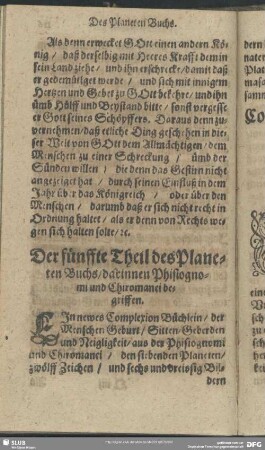 Des Planeten Buchs.
Als denn erwecket GOtt einen andern Kö-
nig / daß derselbig mit Heeres Krafft dem in
sein Land ziehe / und ihn erschrecke / damit daß
er gedemütiget werde / und sich mit innigem
Hertzen und Gebet zu GOtt bekehre / und ihn
umb Hülff und Beystand bitte / sonst vergesse
er Gott seines Schöpffers. Daraus denn zu
vernehmen / daß etliche Ding geschehen in die-
ser Welt von GOtt dem Allmächtigen / dem
Menschen zu einer Schreckung / umb der
Sünden willen / die denn das Gestirn nicht
angezeiget hat / durch seinen Einfluß in dem
Jahr über das Königreich / oder über den
Menschen / darumb daß er sich nicht recht in
Ordnung haltet / als er denn von Rechts we-
gen sich halten solte / ꝛc.
Der fünffte Theil des Plane-
ten Buchs / darinnen Phisiogno-
mi und Chiromanci be-
griffen.
EIn newes Complexion Büchlein / der
Menschen Geburt / Sitten / Geberden
und Neigligkeit / aus der Phisiognomi
und Chiromanci / den siebenden Planeten /
zwölff Zeichen / und sechs und dreissig Bil-
dern
SLUB
DFG